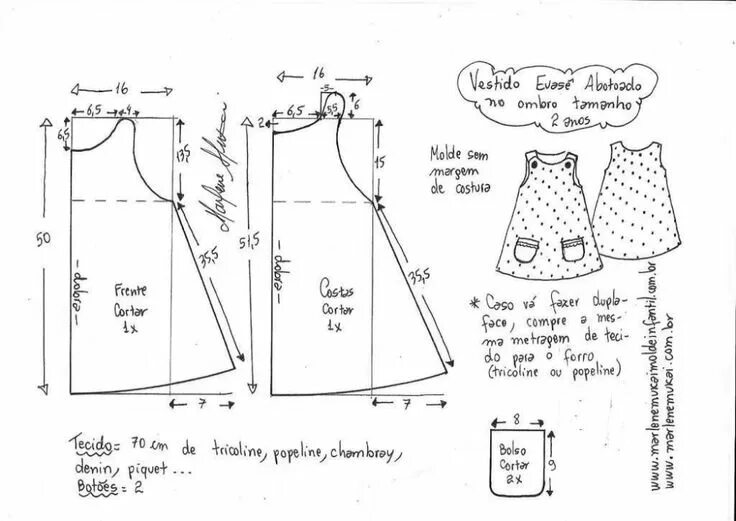 Vestido Evasê Abotoado
no ombro tamanho
2 anos
Molde sem
margem
de costura
16
6,5
4
6,5
13,5
50
35,5
-dobra-
Frente
Cortar
1x
7
Marlene Mukai
16
5
6,5
5,5
6
2
15
51,5
35,5
-dobra-
Costas
Cortar
1x
7
* Caso vá fazer dupla-
face, compre a mes-
ma metragem de teci-
do para o forro
(tricoline ou popeline)
www.marlenemukaimoldeinfantil.com.br
www.marlenemukai.com.br
Tecido= 70 cm de tricoline, popeline, chambray,
denin, piquet...
Botões= 2
8
Bolso
Cortar
2x
9